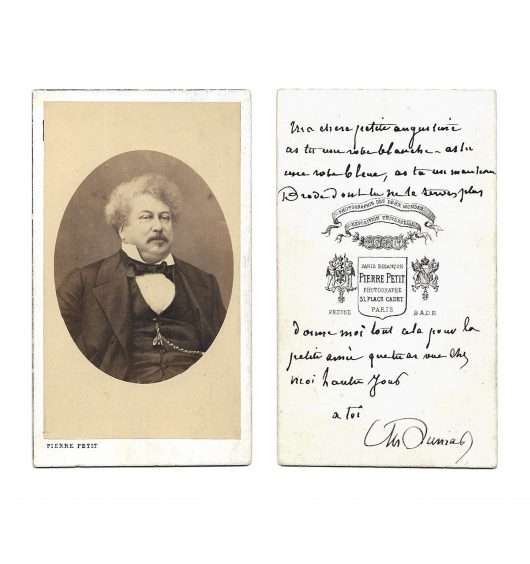 PIERRE PETIT
Ma chere petite augustine
as tu une robe blanche - as tu
une robe bleue, as tu un manteau
Brode dont tu ne te serves plus
PHOTOGRAPHIE DES DEUX MONDES
EXPOSITION UNIVERSELLE
PARIS BESANÇON
PIERRE PETIT
PHOTOGRAPHE
31, PLACE CADET
PARIS
PRUSSE
BADE
donne moi tout cela pour la
petite amie que tu as vue chez
moi l'autre Jour
a toi
Alex Dumas